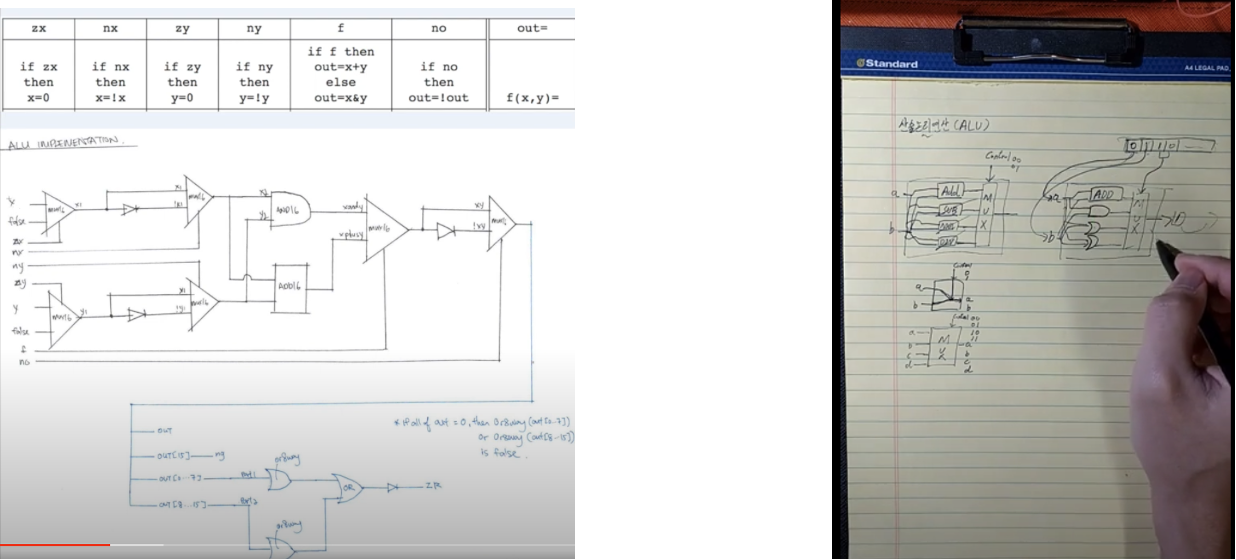 zx nx zy ny f no out=
if zx then x=0
if nx then x=!x
if zy then y=0
if ny then y=!y
if f then out=x+y else out=x&y
if no then out=!out
f(x,y)=
ALU IMPLEMENTATION.
x
false
zx
nx
ny
zy
y
false
f
no
MUX16
x1
x1
!x1
MUX16
AND16
ADD16
xandy
xplusy
MUX16
xy
!xy
MUX16
MUX16
y1
!y1
MUX16
OUT
OUT[15] ng
OUT[0...7] out1
OUT[8...15] out2
or8way
or8way
OR
ZR
* if all of out = 0, then Or8way (out[0..7])
or Or8way (out[8..15])
is false.
Standard
A4 LEGAL PAD
산술논리연산 (ALU)
Control 00
01
a
b
Add
SUB
M
U
X
0 1 1 0
a
b
ADD
M
U
X
Control
0
1
a
b
a
b
Control 00
01
10
11
a
b
c
d
M
U
X
a
b
c
d